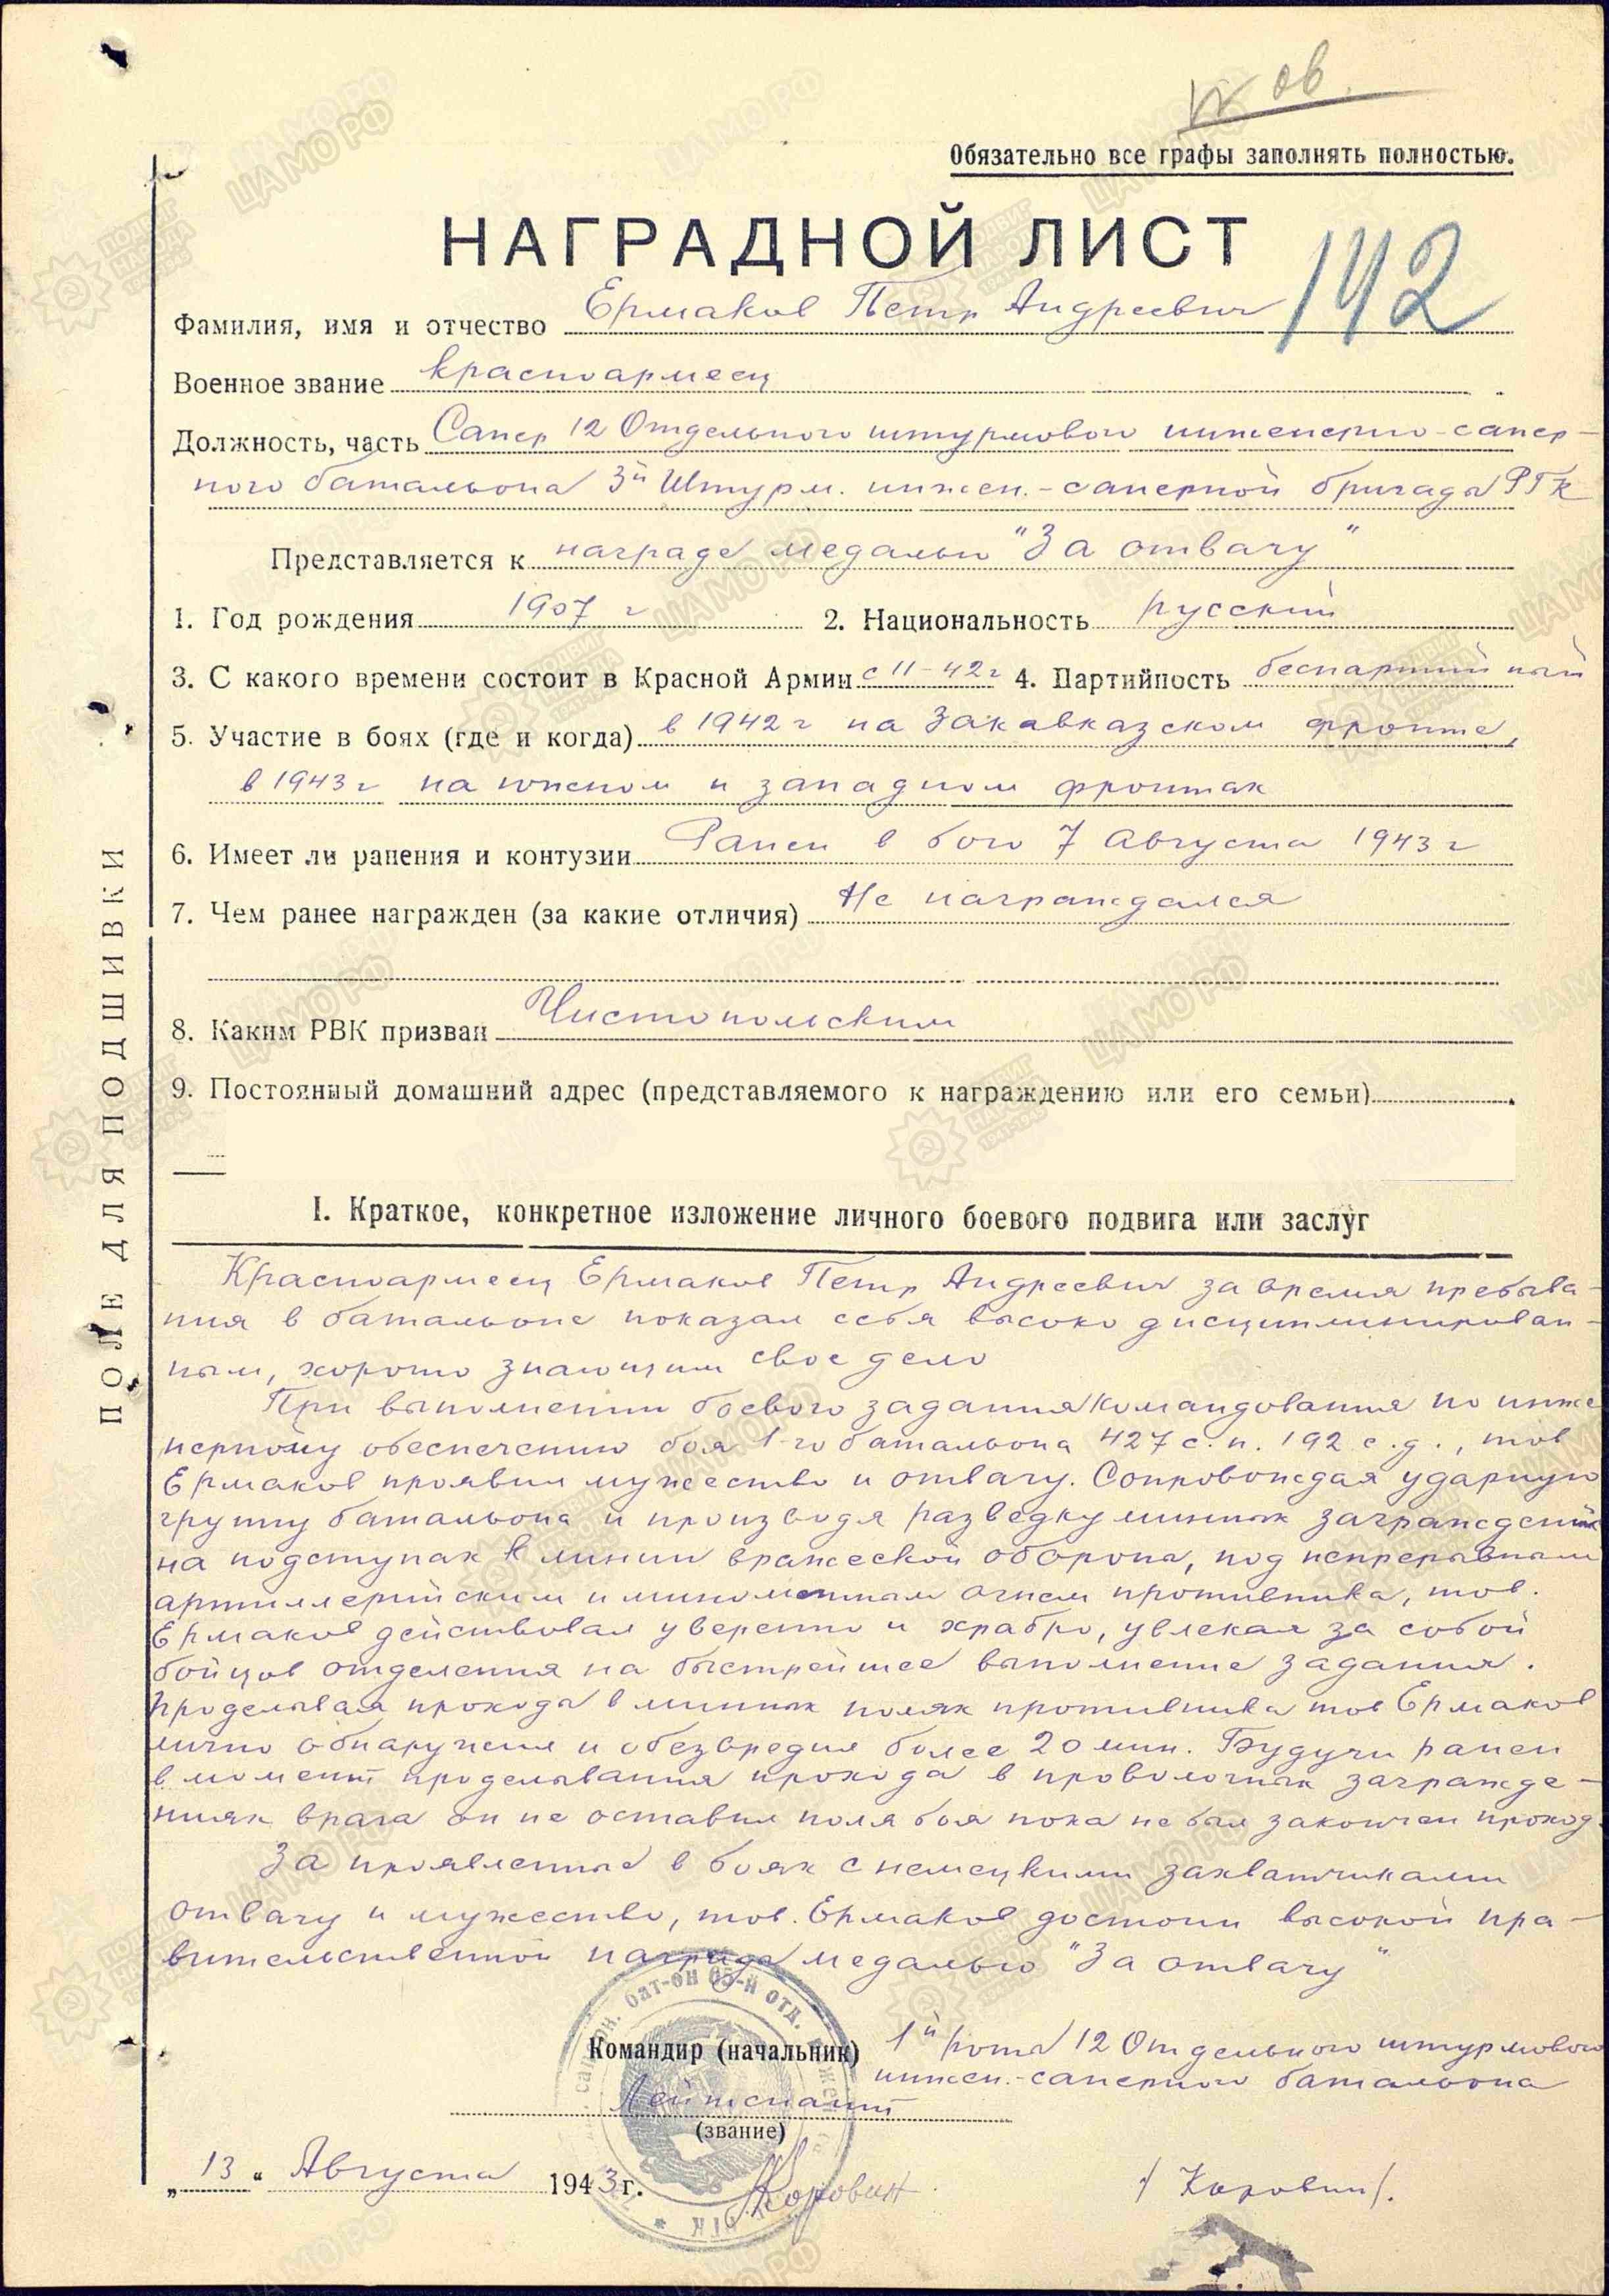 Обязательно все графы заполнять полностью.
НАГРАДНОЙ ЛИСТ
142
Фамилия, имя и отчество Ермаков Петр Андреевич
Военное звание красноармеец
Должность, часть Сапер 12 Отдельного штурмового инженерно-сапер-
ного батальона 3й Штурм. инжен.-саперной бригады РГК
Представляется к награде медалью "За отвагу"
1. Год рождения 1907 г 2. Национальность русский
3. С какого времени состоит в Красной Армии с 11-42 г 4. Партийность беспартийный
5. Участие в боях (где и когда) в 1942 г на Закавказском фронте,
в 1943 г на южном и западном фронтах
6. Имеет ли ранения и контузии Ранен в бою 7 августа 1943 г
7. Чем ранее награжден (за какие отличия) Не награждался
8. Каким РВК призван Чистопольским
9. Постоянный домашний адрес (представляемого к награждению или его семьи)
I. Краткое, конкретное изложение личного боевого подвига или заслуг
Красноармеец Ермаков Петр Андреевич за время пребыва-
ния в батальоне показал себя высоко дисциплинирован-
ным, хорошо знающим свое дело
При выполнении боевого задания командования по инже
нерному обеспечению боя 1-го батальона 427 с.п. 192 с.д., тов
Ермаков проявил мужество и отвагу. Сопровождая ударную
группу батальона и производя разведку минных заграждений
на подступах к линии вражеской обороны, под непрерывным
артиллерийским и минометным огнем противника, тов.
Ермаков действовал уверенно и храбро, увлекая за собой
бойцов отделения на быстрейшее выполнение задания.
Проделывая проходы в минных полях противника тов Ермаков
лично обнаружил и обезвредил более 20 мин. Будучи ранен
в момент проделывания прохода в проволочных загражде-
ниях врага он не оставил поля боя пока не был закончен проход.
За проявленные в боях с немецкими захватчиками
отвагу и мужество, тов. Ермаков достоин высокой пра-
вительственной награды медалью "За отвагу"
Командир (начальник) 1й роты 12 Отдельного штурмового
инжен.-саперного батальона
Лейтенант
(звание)
„13" Августа 1943 г. Коровин /Коровин/.
ПОЛЕ ДЛЯ ПОДШИВКИ
ЦАМО РФ
ПОДВИГ НАРОДА